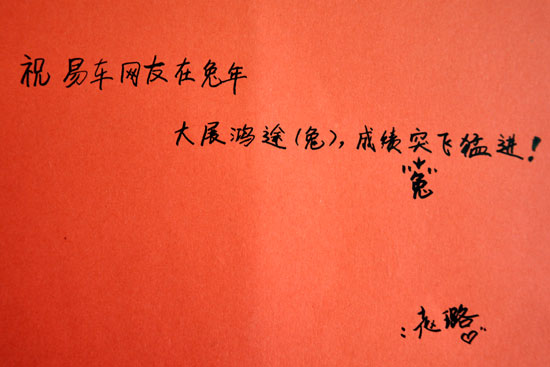 祝易车网友在兔年
大展鸿途(兔),成绩突飞猛进!
"兔"
赵璐